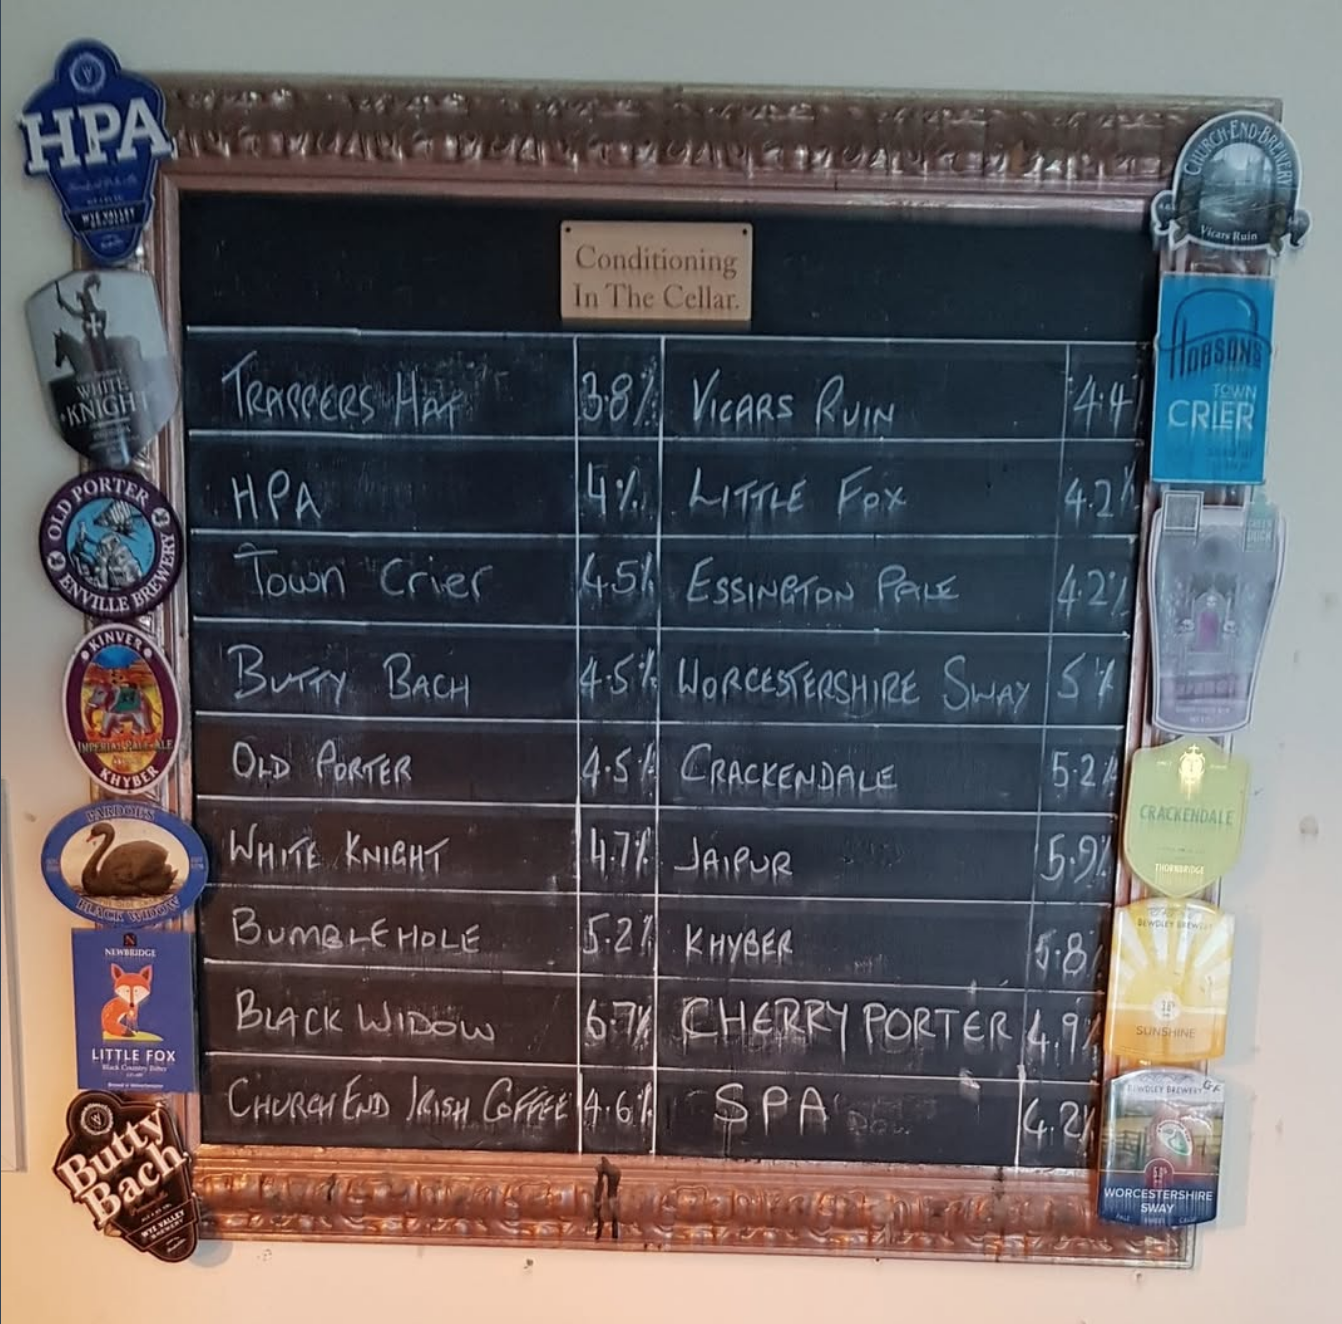 Conditioning
In The Cellar.
TRAPPERS HAT 3.8% VICARS RUIN 4.4
HPA 4% LITTLE FOX 4.2%
Town Crier 4.5% ESSINGTON PALE 4.2%
BUTTY BACH 4.5% WORCESTERSHIRE SWAY 5%
OLD PORTER 4.5% CRACKENDALE 5.2%
WHITE KNIGHT 4.7% JAIPUR 5.9%
BUMBLEHOLE 5.2% KHYBER 5.8
BLACK WIDOW 6.7% CHERRY PORTER 4.9%
CHURCH END IRISH COFFEE 4.6% SPA 4.2%
HPA
WYE VALLEY
WHITE
KNIGHT
OLD PORTER
ENVILLE BREWERY
KINVER
IMPERIAL PALE ALE
KHYBER
PARDOE'S
BLACK WIDOW
NEWBRIDGE
LITTLE FOX
Black Country Bitter
Butty
Bach
WYE VALLEY
BREWERY
CHURCH-END-BREWERY
Vicars Ruin
HOBSONS
TOWN
CRIER
GREEN
DUCK
CRACKENDALE
THORNBRIDGE
BEWDLEY BREWERY
SUNSHINE
BEWDLEY BREWERY
WORCESTERSHIRE
SWAY
PALE SWEET CRISP